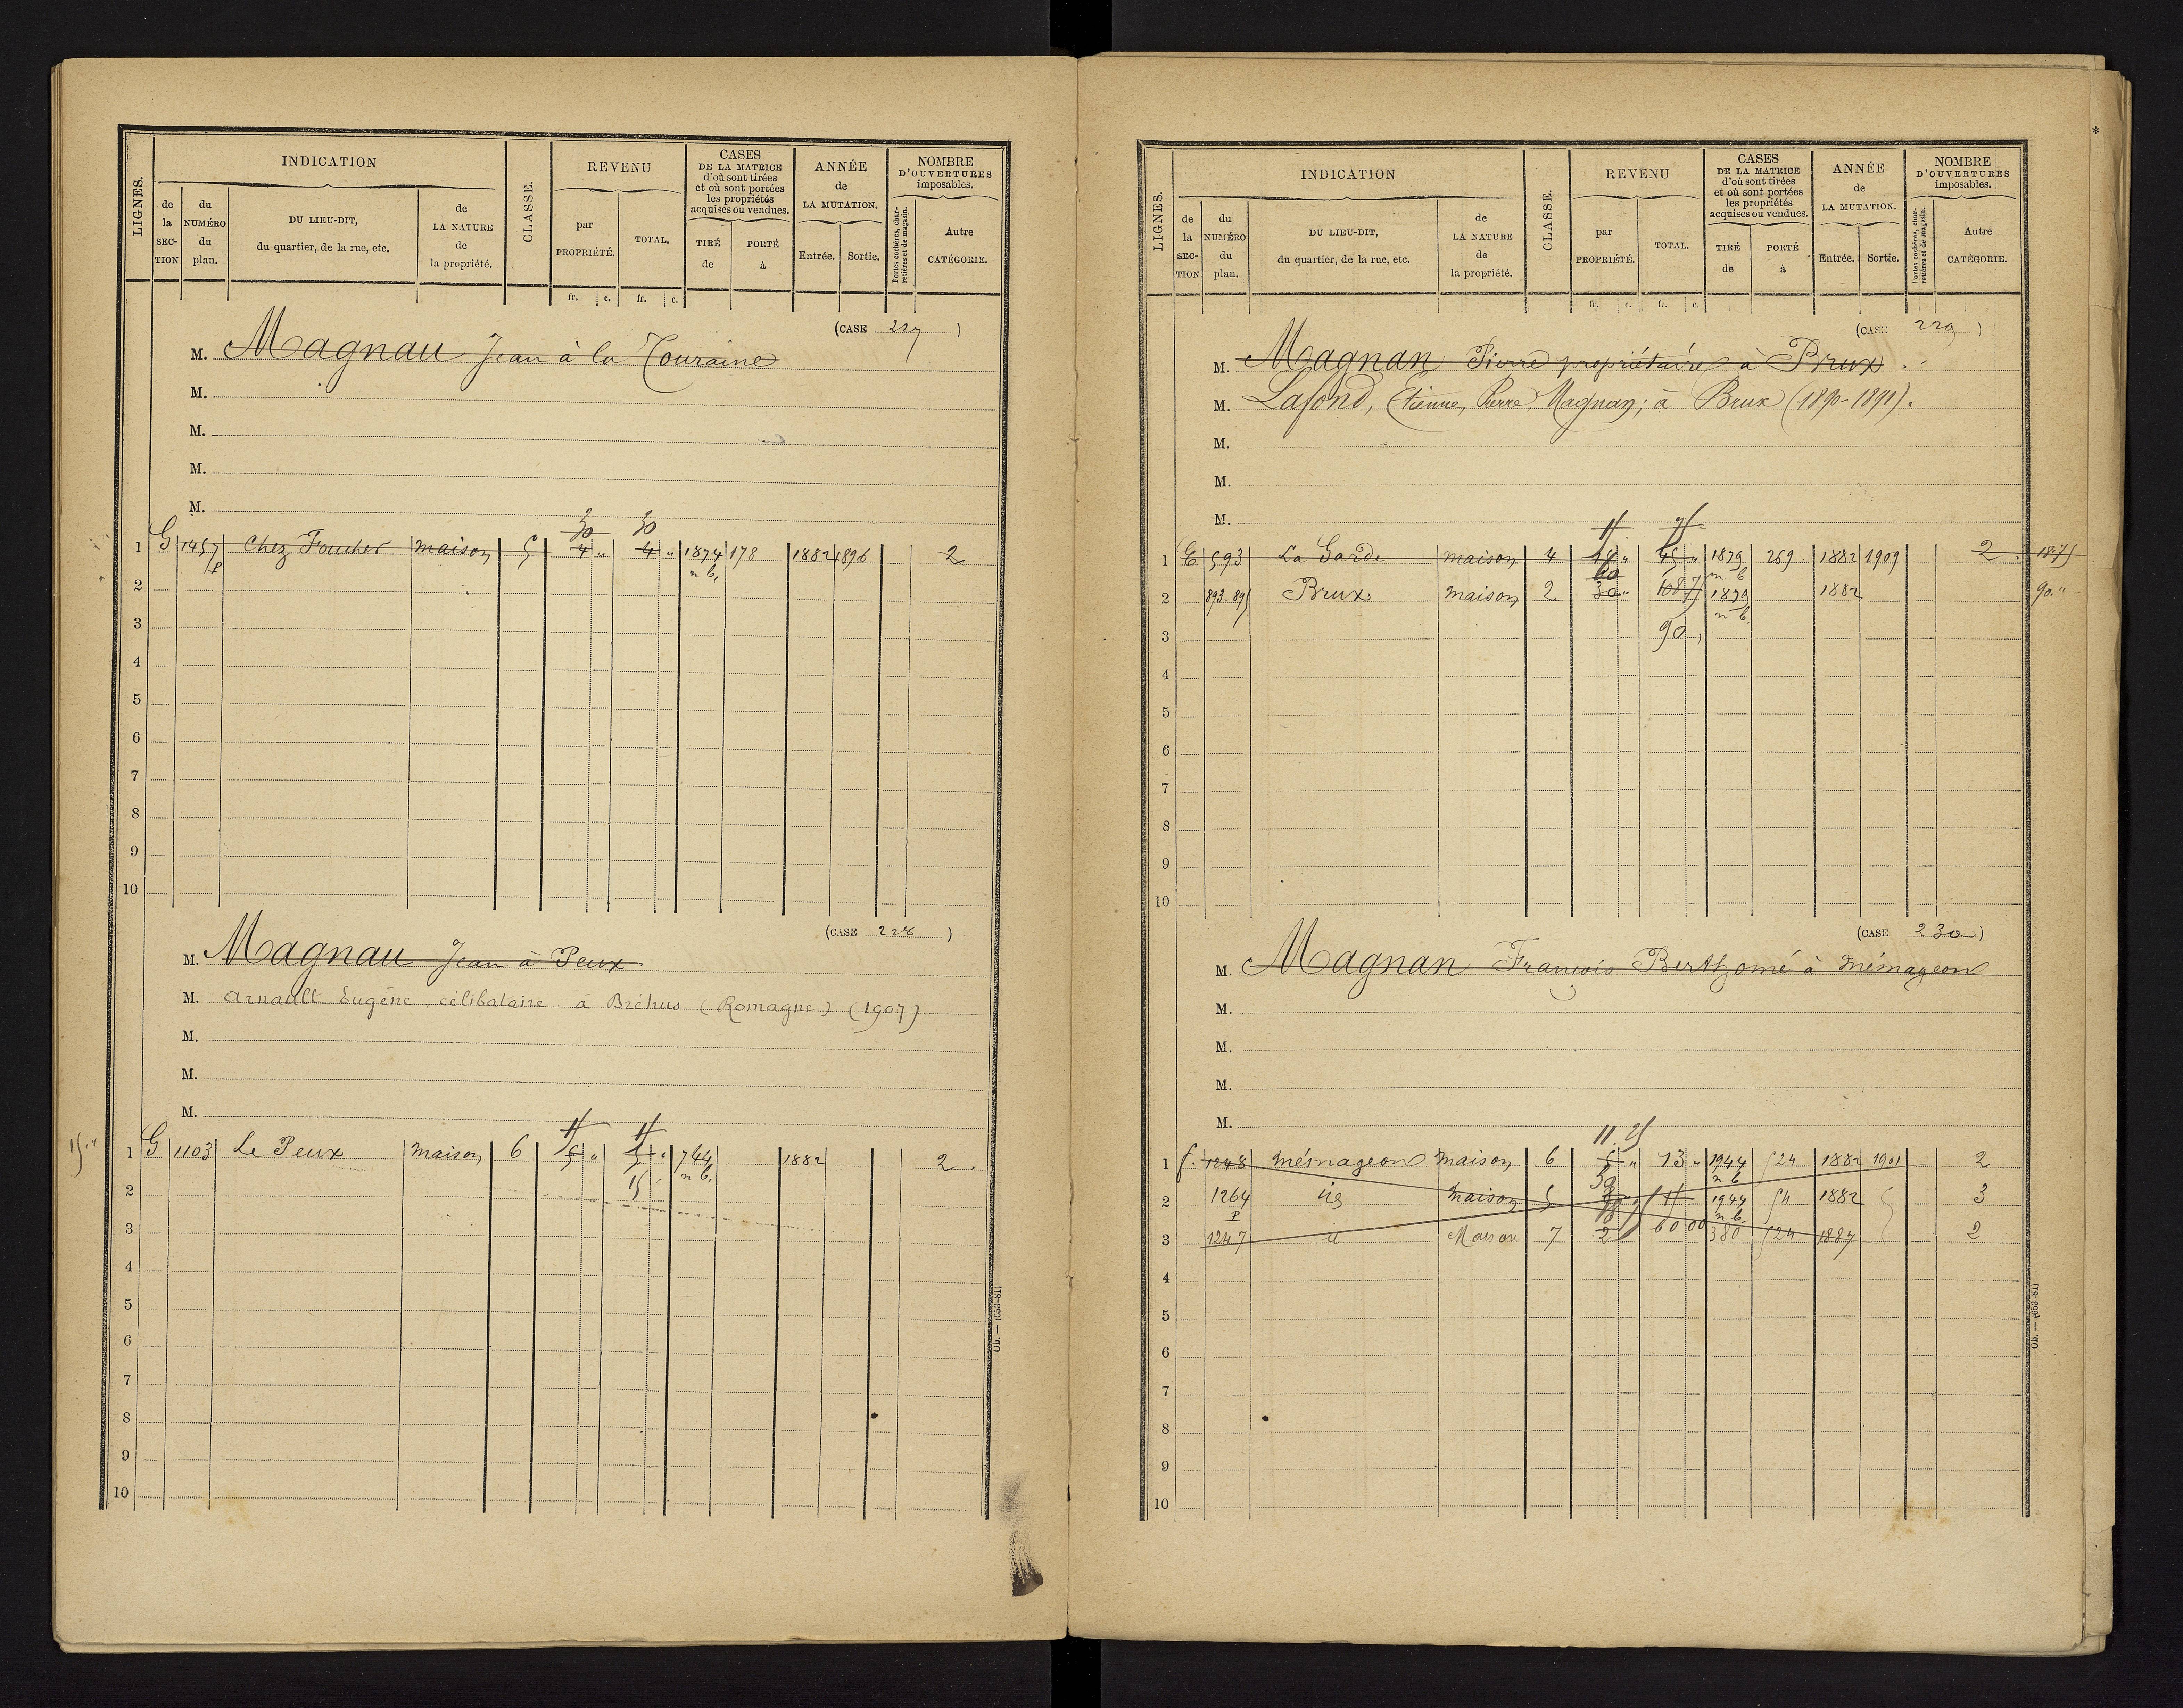 LIGNES.
INDICATION
de la SECTION
du NUMÉRO du plan.
DU LIEU-DIT, du quartier, de la rue, etc.
de LA NATURE de la propriété.
CLASSE.
REVENU
par PROPRIÉTÉ.
TOTAL.
CASES DE LA MATRICE d'où sont tirées et où sont portées les propriétés acquises ou vendues.
TIRÉ de
PORTÉ à
ANNÉE de LA MUTATION.
Entrée.
Sortie.
NOMBRE D'OUVERTURES imposables.
Portes cochères, charretières et de magasin.
Autre CATÉGORIE.
fr. c. fr. c.
(CASE 227)
M. Magnau Jean à la Touraine
M.
M.
M.
M.
30 30
1 G 1457 Chez Foucher maison 5 4 " 4 " 1874 178 1882 1896 2
p n b.
2
3
4
5
6
7
8
9
10
(CASE 228)
M. Magnau Jean à Peux
M. Arnault Eugène célibataire à Bréhus (Romagne) (1907)
M.
M.
M.
15 " 1 G 1103 Le Peux maison 6 5 " 5 " 744 1882 2.
15 n b.
2
3
4
5
6
7
8
9
10
Ob. — (653-81)
LIGNES.
INDICATION
de la SECTION
du NUMÉRO du plan.
DU LIEU-DIT, du quartier, de la rue, etc.
de LA NATURE de la propriété.
CLASSE.
REVENU
par PROPRIÉTÉ.
TOTAL.
CASES DE LA MATRICE d'où sont tirées et où sont portées les propriétés acquises ou vendues.
TIRÉ de
PORTÉ à
ANNÉE de LA MUTATION.
Entrée.
Sortie.
NOMBRE D'OUVERTURES imposables.
Portes cochères, charretières et de magasin.
Autre CATÉGORIE.
fr. c. fr. c.
(CASE 229)
M. Magnan Pierre propriétaire à Brux.
M. Lafond, Etienne, Pierre Magnan; à Brux (1890-1891).
M.
M.
M.
1 E 593 La Garde maison 4 45 " 1879 269 1882 1909 2 1875
n b
2 893-895 Brux maison 2 30 " 1879 1882 90. "
n b.
3 90
4
5
6
7
8
9
10
(CASE 230)
M. Magnan François Berthomé à Mémageon
M.
M.
M.
M.
11.25
1 f. 1248 Mémageon maison 6 5 " 13 " 1944 524 1882 1901 2
n b
2 1264 id maison 5 1944 54 1882 3
p n b.
3 1247 id Maison 7 2 60 00 380 524 1887 2
4
5
6
7
8
9
10
Ob. — (653-81)